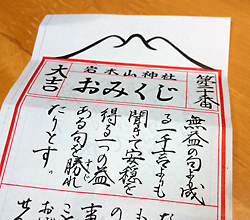 岩木山神社
おみくじ
大吉
無益の句を成
る一千言よりも
聞きて安穏を
得る一つの益
ある句を勝れ
たりとす。